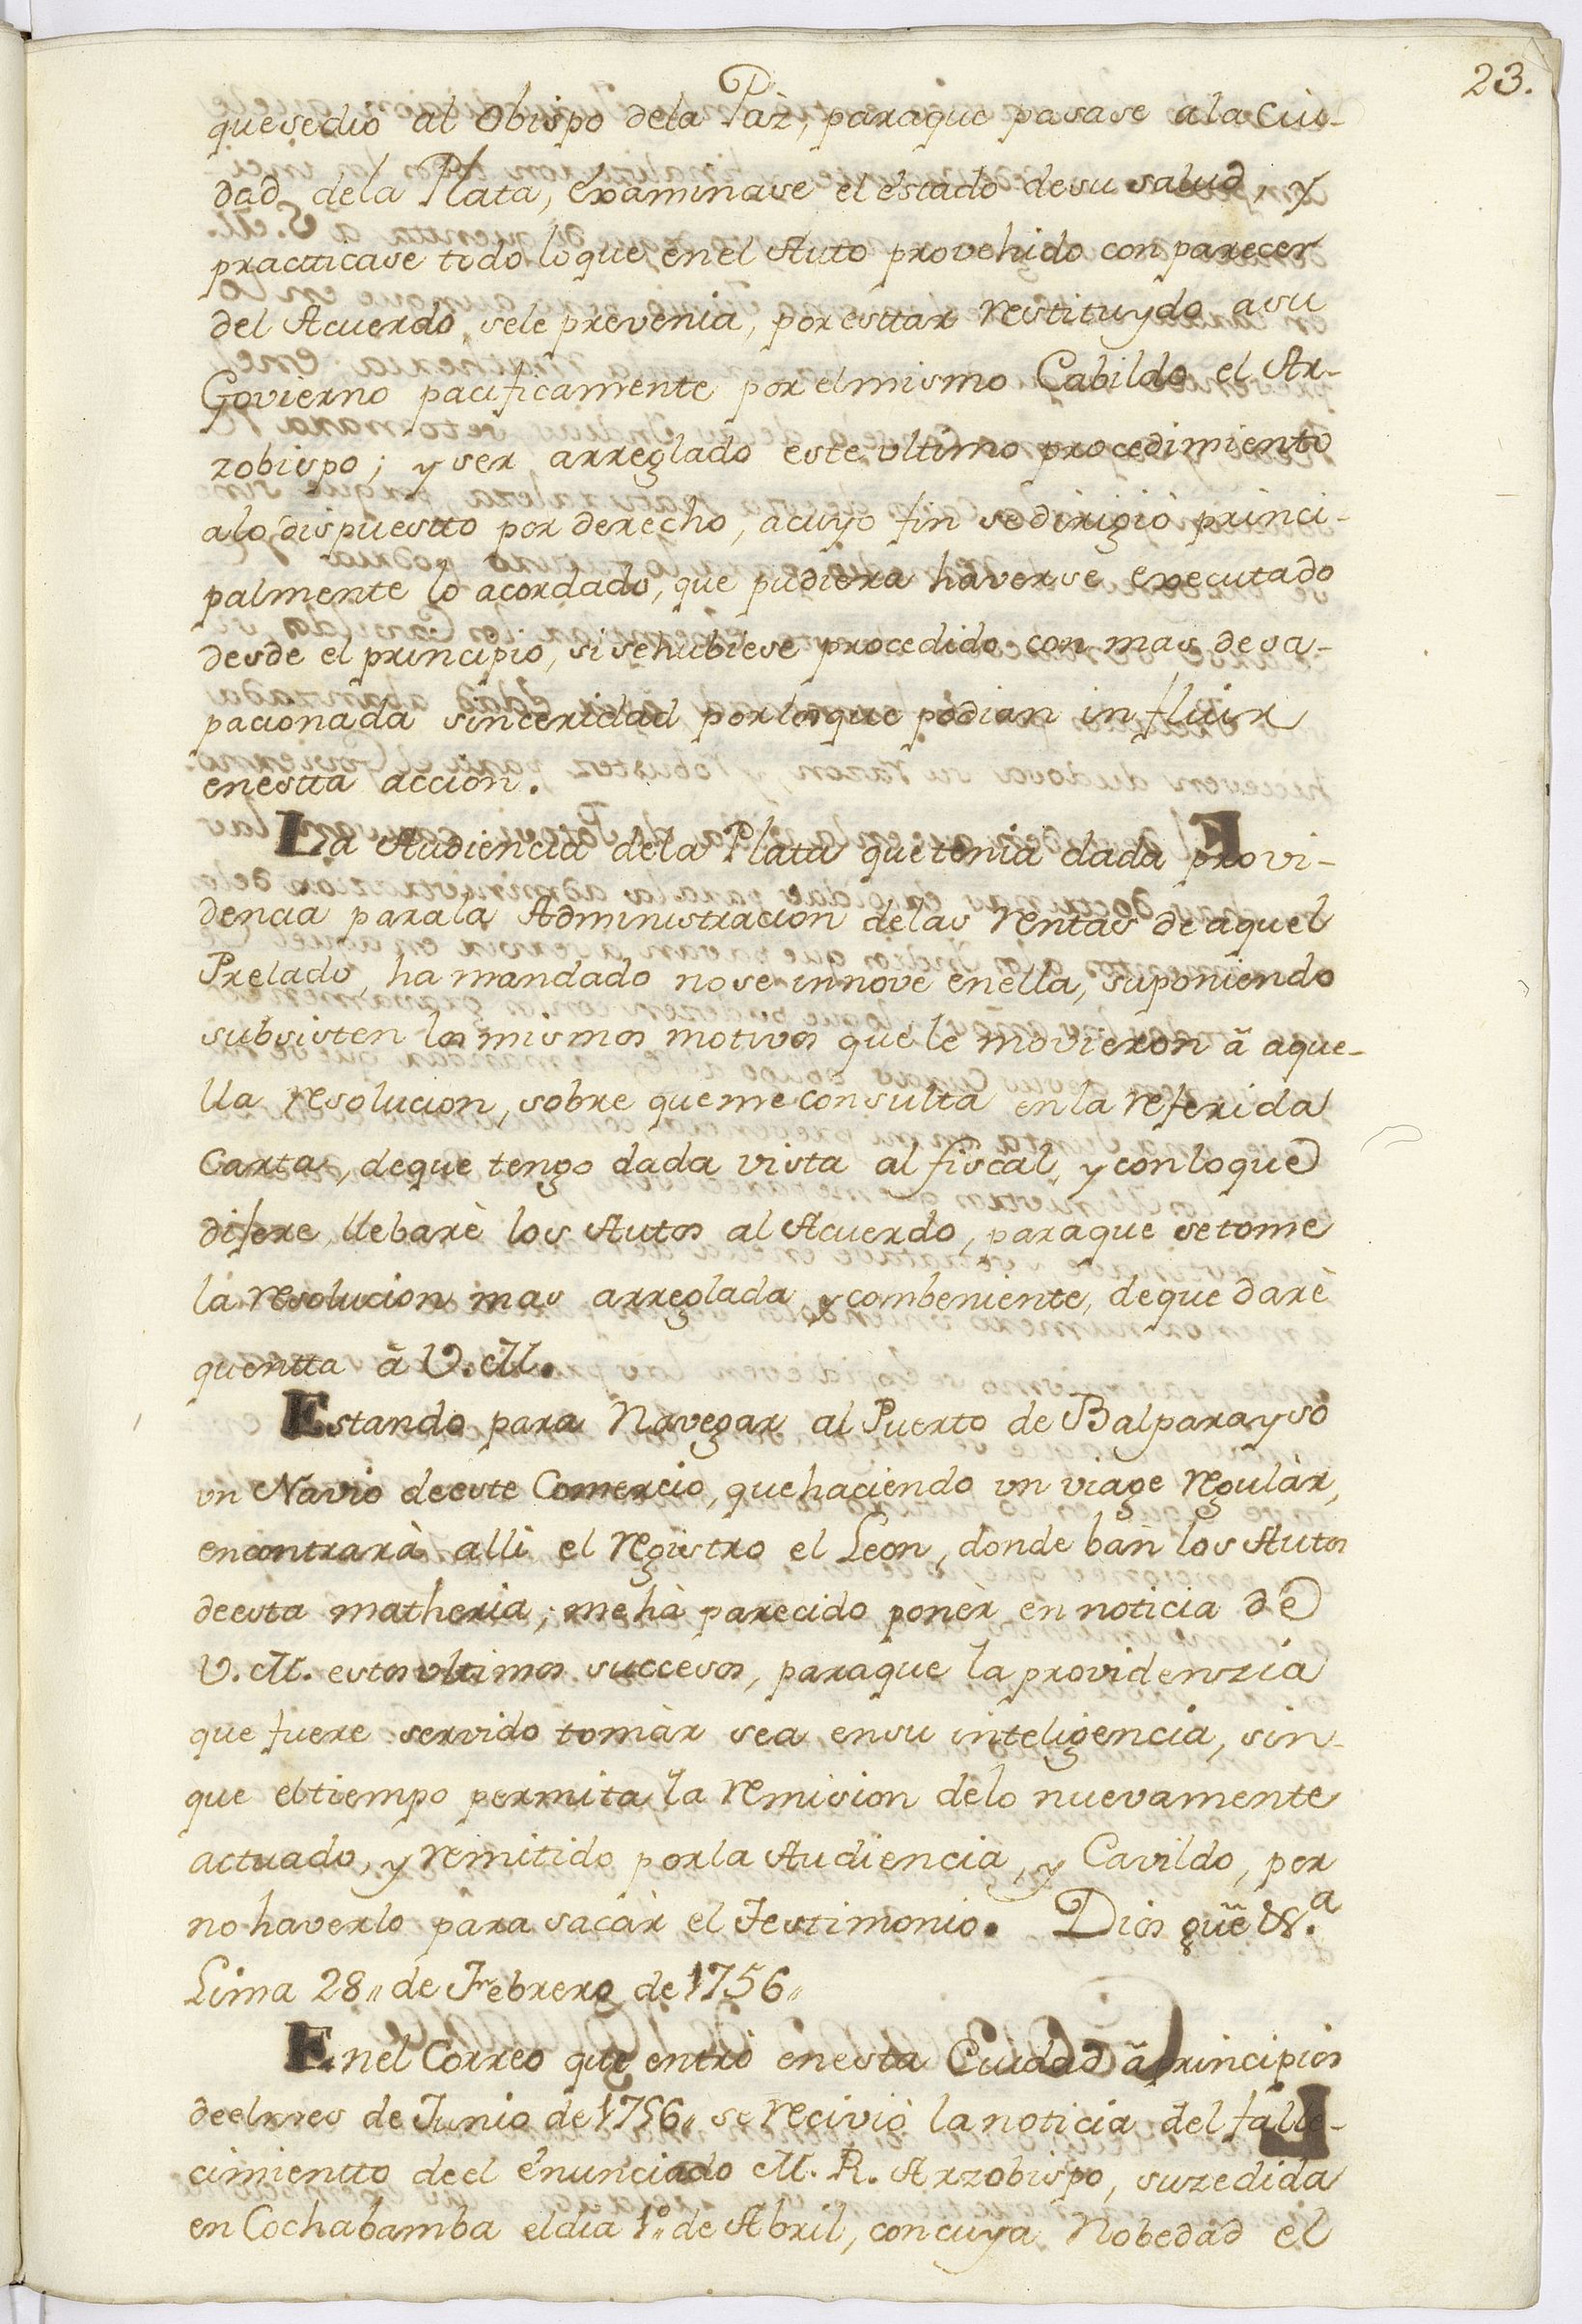 23.
que se dio al Obispo dela Paz, paraque pasase ala Ciu-
dad dela Plata, examinase el estado desu salud, y
practticase todo loque enel Auto provehido con parecer
del Acuerdo, sele prevenia, por esttar restituydo asu
Govierno pacificamente por el mismo Cabildo el Ar-
zobispo; y ser arreglado este ultimo procedimiento
alo dispuestto por derecho, acuyo fin se dirigiò princi-
palmente lo acordado, que pudiera haverse executado
desde el principio, si sehubiese procedido con mas desa-
pacionada sinceridad por los que podian influir
enestta accion.
La Audiencia dela Plata que tenia dada provi-
dencia parala Administracion delas rentas de aquel
Prelado, ha mandado nose innove enella, suponiendo
subsisten los mismos motivos que le movieron ã aque-
lla resolucion, sobre queme consulta en la referida
Carta, deque tengo dada vista al fiscal, y conloque
difere, llebarè los Autos al Acuerdo, paraque setome
la resolucion mas arreglada y combeniente, deque darè
quentta ã V. M.
Estando para Navegar al Puerto de Balparayso
vn Navio deeste Comercio, que haciendo vn viage regulàr,
encontrarà alli el registro el Leon, donde bàn los Autos
deesta matheria; me hà parecido ponèr en noticia de
V. M. estos ultimos succesos, paraque la providenzia
que fuere servido tomàr sea ensu inteligencia, sin-
que el tiempo permita la remision delo nuevamente
actuado, y remitido porla Audiencia, y Cavildo, por
no haverlo para sacàr el Testimonio. Dios gũe &.ª
Lima 28,, de Febrero de 1756,,
Enel Correo que entrò enesta Ciudad ã principios
deel mes de Junio de 1756,, se recivió la noticia del falle-
cimientto deel enunciado M. R. Arzobispo, suzedida
en Cochabamba el dia 1º,, de Abril, con cuya Nobedad el